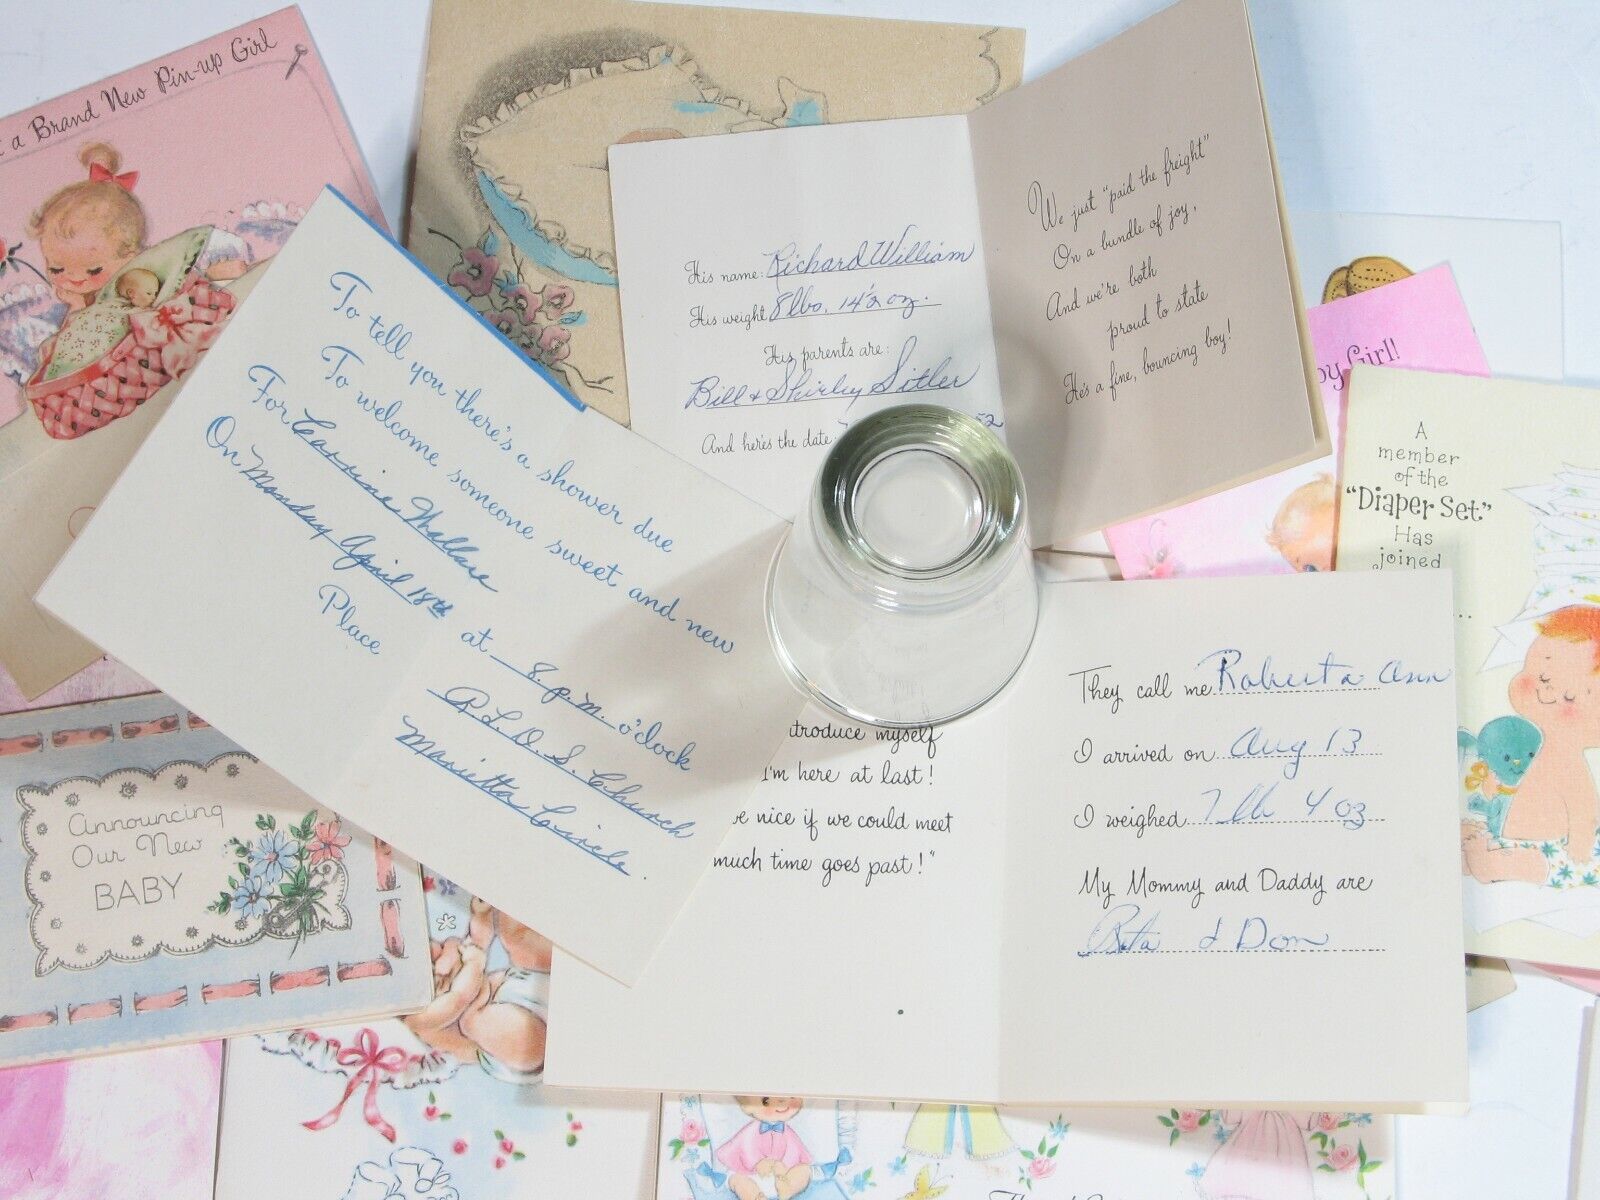 a Brand New Pin-up Girl
His name: Richard William
His weight 8 lbs, 14 1/2 oz.
His parents are:
Bill & Shirley Sitler
And here's the date
52
We just "paid the freight"
On a bundle of joy,
And we're both
proud to state
He's a fine, bouncing boy!
To tell you there's a shower due
To welcome someone sweet and new
For Corrine Wallace
On Monday April 18th at 8. p.m. o'clock
Place R.L.D.S. Church
Marietta Circle.
by Girl!
A
member
of the
"Diaper Set"
Has
joined
...
Announcing
Our New
BABY
troduce myself
I'm here at last!
e nice if we could meet
much time goes past!"
They call me Roberta Ann
I arrived on Aug 13
I weighed 7 lb 4 oz
My Mommy and Daddy are
Rita & Don